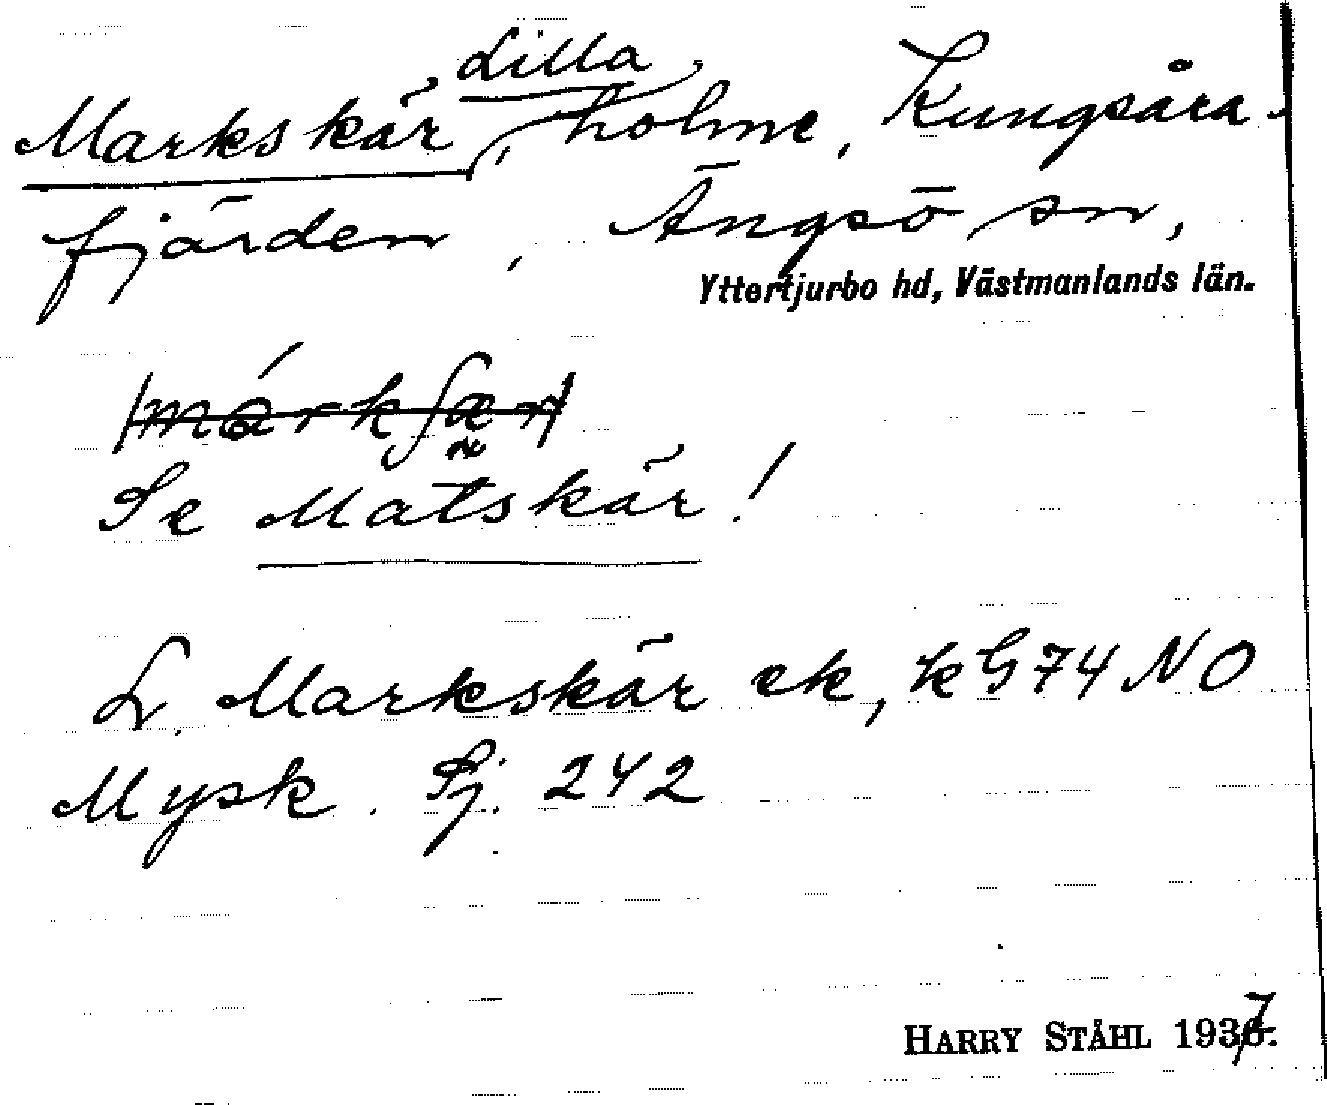 Markskär, Lilla, holme, Kungsåra-
fjärden, Ängsö sn,
Yttertjurbo hd, Västmanlands län.
Se Matskär!
L. Markskär ek, kG74 NO
Mysk. Sj. 242
HARRY STÅHL 1937.